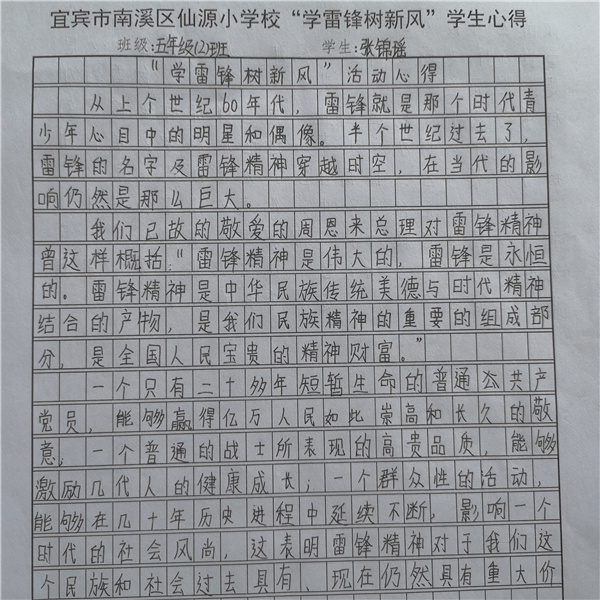 宜宾市南溪区仙源小学校“学雷锋树新风”学生心得
班级:五年级(2)班 学生:张锦瑶
“学雷锋树新风”活动心得
从上个世纪60年代，雷锋就是那个时代青
少年心目中的明星和偶像。半个世纪过去了，
雷锋的名字及雷锋精神穿越时空，在当代的影
响仍然是那么巨大。
我们已故的敬爱的周恩来总理对雷锋精神
曾这样概括：“雷锋精神是伟大的，雷锋是永恒
的。雷锋精神是中华民族传统美德与时代精神
结合的产物，是我们民族精神的重要的组成部
分，是全国人民宝贵的精神财富。”
一个只有二十多年短暂生命的普通共产
党员，能够赢得亿万人民如此崇高和长久的敬
意；一个普通的战士所表现的高贵品质，能够
激励几代人的健康成长；一个群众性的活动，
能够在几十年历史进程中延续不断，影响一个
时代的社会风尚，这表明雷锋精神对于我们这
个民族和社会过去具有、现在仍然具有重大价